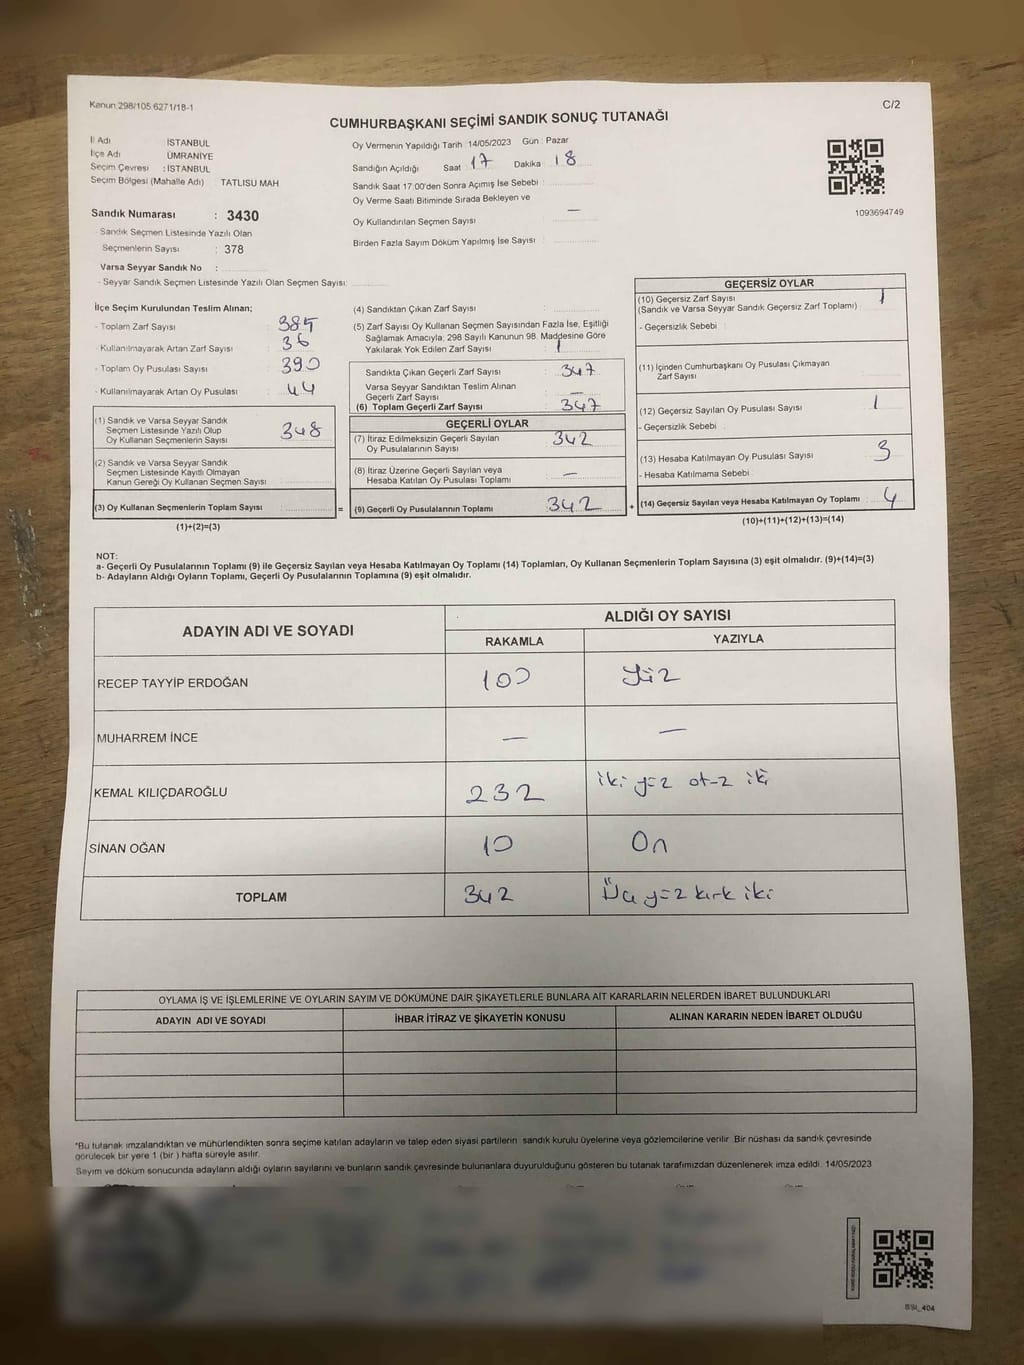 Kanun:298/105 6271/18-1
C/2
CUMHURBAŞKANI SEÇİMİ SANDIK SONUÇ TUTANAĞI
İl Adı İSTANBUL
İlçe Adı ÜMRANİYE
Seçim Çevresi : İSTANBUL
Seçim Bölgesi (Mahalle Adı) TATLISU MAH
Sandık Numarası : 3430
- Sandık Seçmen Listesinde Yazılı Olan
Seçmenlerin Sayısı : 378
Varsa Seyyar Sandık No :
- Seyyar Sandık Seçmen Listesinde Yazılı Olan Seçmen Sayısı:
Oy Vermenin Yapıldığı Tarih :14/05/2023 Gün : Pazar
Sandığın Açıldığı Saat : 17 Dakika : 18
Sandık Saat 17:00'den Sonra Açımış İse Sebebi :
Oy Verme Saati Bitiminde Sırada Bekleyen ve
Oy Kullandırılan Seçmen Sayısı : —
Birden Fazla Sayım Döküm Yapılmış İse Sayısı :
1093694749
İlçe Seçim Kurulundan Teslim Alınan;
- Toplam Zarf Sayısı : 385
- Kullanılmayarak Artan Zarf Sayısı : 36
- Toplam Oy Pusulası Sayısı : 390
- Kullanılmayarak Artan Oy Pusulası : 44
(1) Sandık ve Varsa Seyyar Sandık
Seçmen Listesinde Yazılı Olup
Oy Kullanan Seçmenlerin Sayısı : 348
(2) Sandık ve Varsa Seyyar Sandık
Seçmen Listesinde Kayıtlı Olmayan
Kanun Gereği Oy Kullanan Seçmen Sayısı :
(3) Oy Kullanan Seçmenlerin Toplam Sayısı :
(1)+(2)=(3)
=
(4) Sandıktan Çıkan Zarf Sayısı :
(5) Zarf Sayısı Oy Kullanan Seçmen Sayısından Fazla İse, Eşitliği
Sağlamak Amacıyla; 298 Sayılı Kanunun 98. Maddesine Göre
Yakılarak Yok Edilen Zarf Sayısı : 1
Sandıkta Çıkan Geçerli Zarf Sayısı : 347
Varsa Seyyar Sandıktan Teslim Alınan
Geçerli Zarf Sayısı : —
(6) Toplam Geçerli Zarf Sayısı : 347
GEÇERLİ OYLAR
(7) İtiraz Edilmeksizin Geçerli Sayılan
Oy Pusulalarının Sayısı : 342
(8) İtiraz Üzerine Geçerli Sayılan veya
Hesaba Katılan Oy Pusulası Toplamı : —
(9) Geçerli Oy Pusulalarının Toplamı : 342
+
GEÇERSİZ OYLAR
(10) Geçersiz Zarf Sayısı : 1
(Sandık ve Varsa Seyyar Sandık Geçersiz Zarf Toplamı)
- Geçersizlik Sebebi :
(11) İçinden Cumhurbaşkanı Oy Pusulası Çıkmayan
Zarf Sayısı :
(12) Geçersiz Sayılan Oy Pusulası Sayısı : 1
- Geçersizlik Sebebi :
(13) Hesaba Katılmayan Oy Pusulası Sayısı : 3
- Hesaba Katılmama Sebebi :
(14) Geçersiz Sayılan veya Hesaba Katılmayan Oy Toplamı : 4
(10)+(11)+(12)+(13)=(14)
NOT:
a- Geçerli Oy Pusulalarının Toplamı (9) ile Geçersiz Sayılan veya Hesaba Katılmayan Oy Toplamı (14) Toplamları, Oy Kullanan Seçmenlerin Toplam Sayısına (3) eşit olmalıdır. (9)+(14)=(3)
b- Adayların Aldığı Oyların Toplamı, Geçerli Oy Pusulalarının Toplamına (9) eşit olmalıdır.
ADAYIN ADI VE SOYADI ALDIĞI OY SAYISI
RAKAMLA YAZIYLA
RECEP TAYYİP ERDOĞAN 100 Yüz
MUHARREM İNCE — —
KEMAL KILIÇDAROĞLU 232 iki yüz otuz iki
SİNAN OĞAN 10 On
TOPLAM 342 Üç yüz kırk iki
OYLAMA İŞ VE İŞLEMLERİNE VE OYLARIN SAYIM VE DÖKÜMÜNE DAİR ŞİKAYETLERLE BUNLARA AİT KARARLARIN NELERDEN İBARET BULUNDUKLARI
ADAYIN ADI VE SOYADI İHBAR İTİRAZ VE ŞİKAYETİN KONUSU ALINAN KARARIN NEDEN İBARET OLDUĞU
*Bu tutanak imzalandıktan ve mühürlendikten sonra seçime katılan adayların ve talep eden siyasi partilerin sandık kurulu üyelerine veya gözlemcilerine verilir. Bir nüshası da sandık çevresinde
görülecek bir yere 1 (bir ) hafta süreyle asılır.
Sayım ve döküm sonucunda adayların aldığı oyların sayılarını ve bunların sandık çevresinde bulunanlara duyurulduğunu gösteren bu tutanak tarafımızdan düzenlenerek imza edildi. 14/05/2023